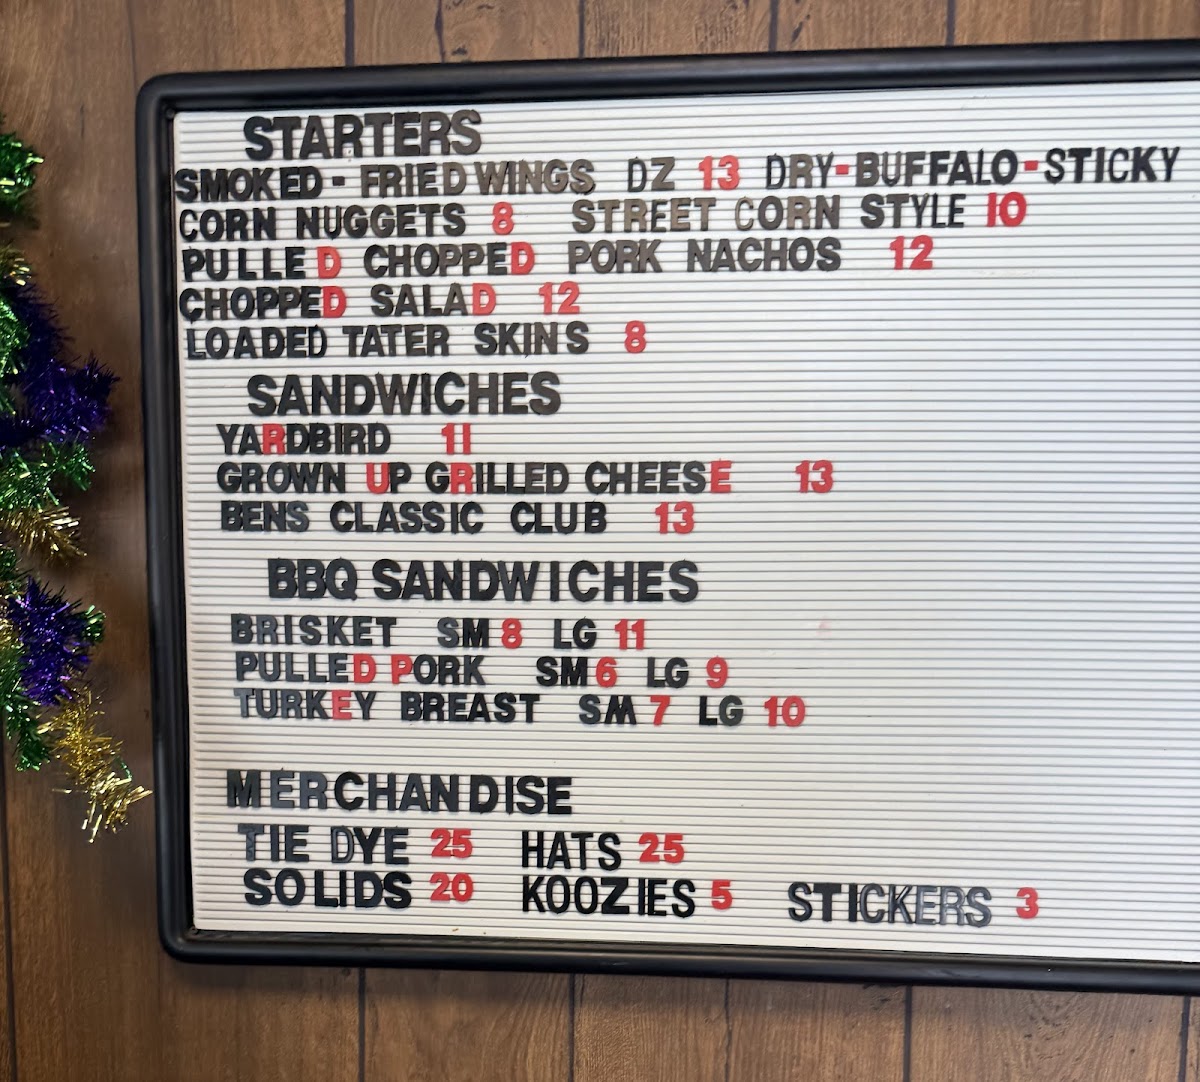 STARTERS
SMOKED - FRIED WINGS DZ 13 DRY-BUFFALO-STICKY
CORN NUGGETS 8 STREET CORN STYLE 10
PULLED CHOPPED PORK NACHOS 12
CHOPPED SALAD 12
LOADED TATER SKINS 8
SANDWICHES
YARDBIRD 11
GROWN UP GRILLED CHEESE 13
BENS CLASSIC CLUB 13
BBQ SANDWICHES
BRISKET SM 8 LG 11
PULLED PORK SM 6 LG 9
TURKEY BREAST SM 7 LG 10
MERCHANDISE
TIE DYE 25 HATS 25
SOLIDS 20 KOOZIES 5 STICKERS 3